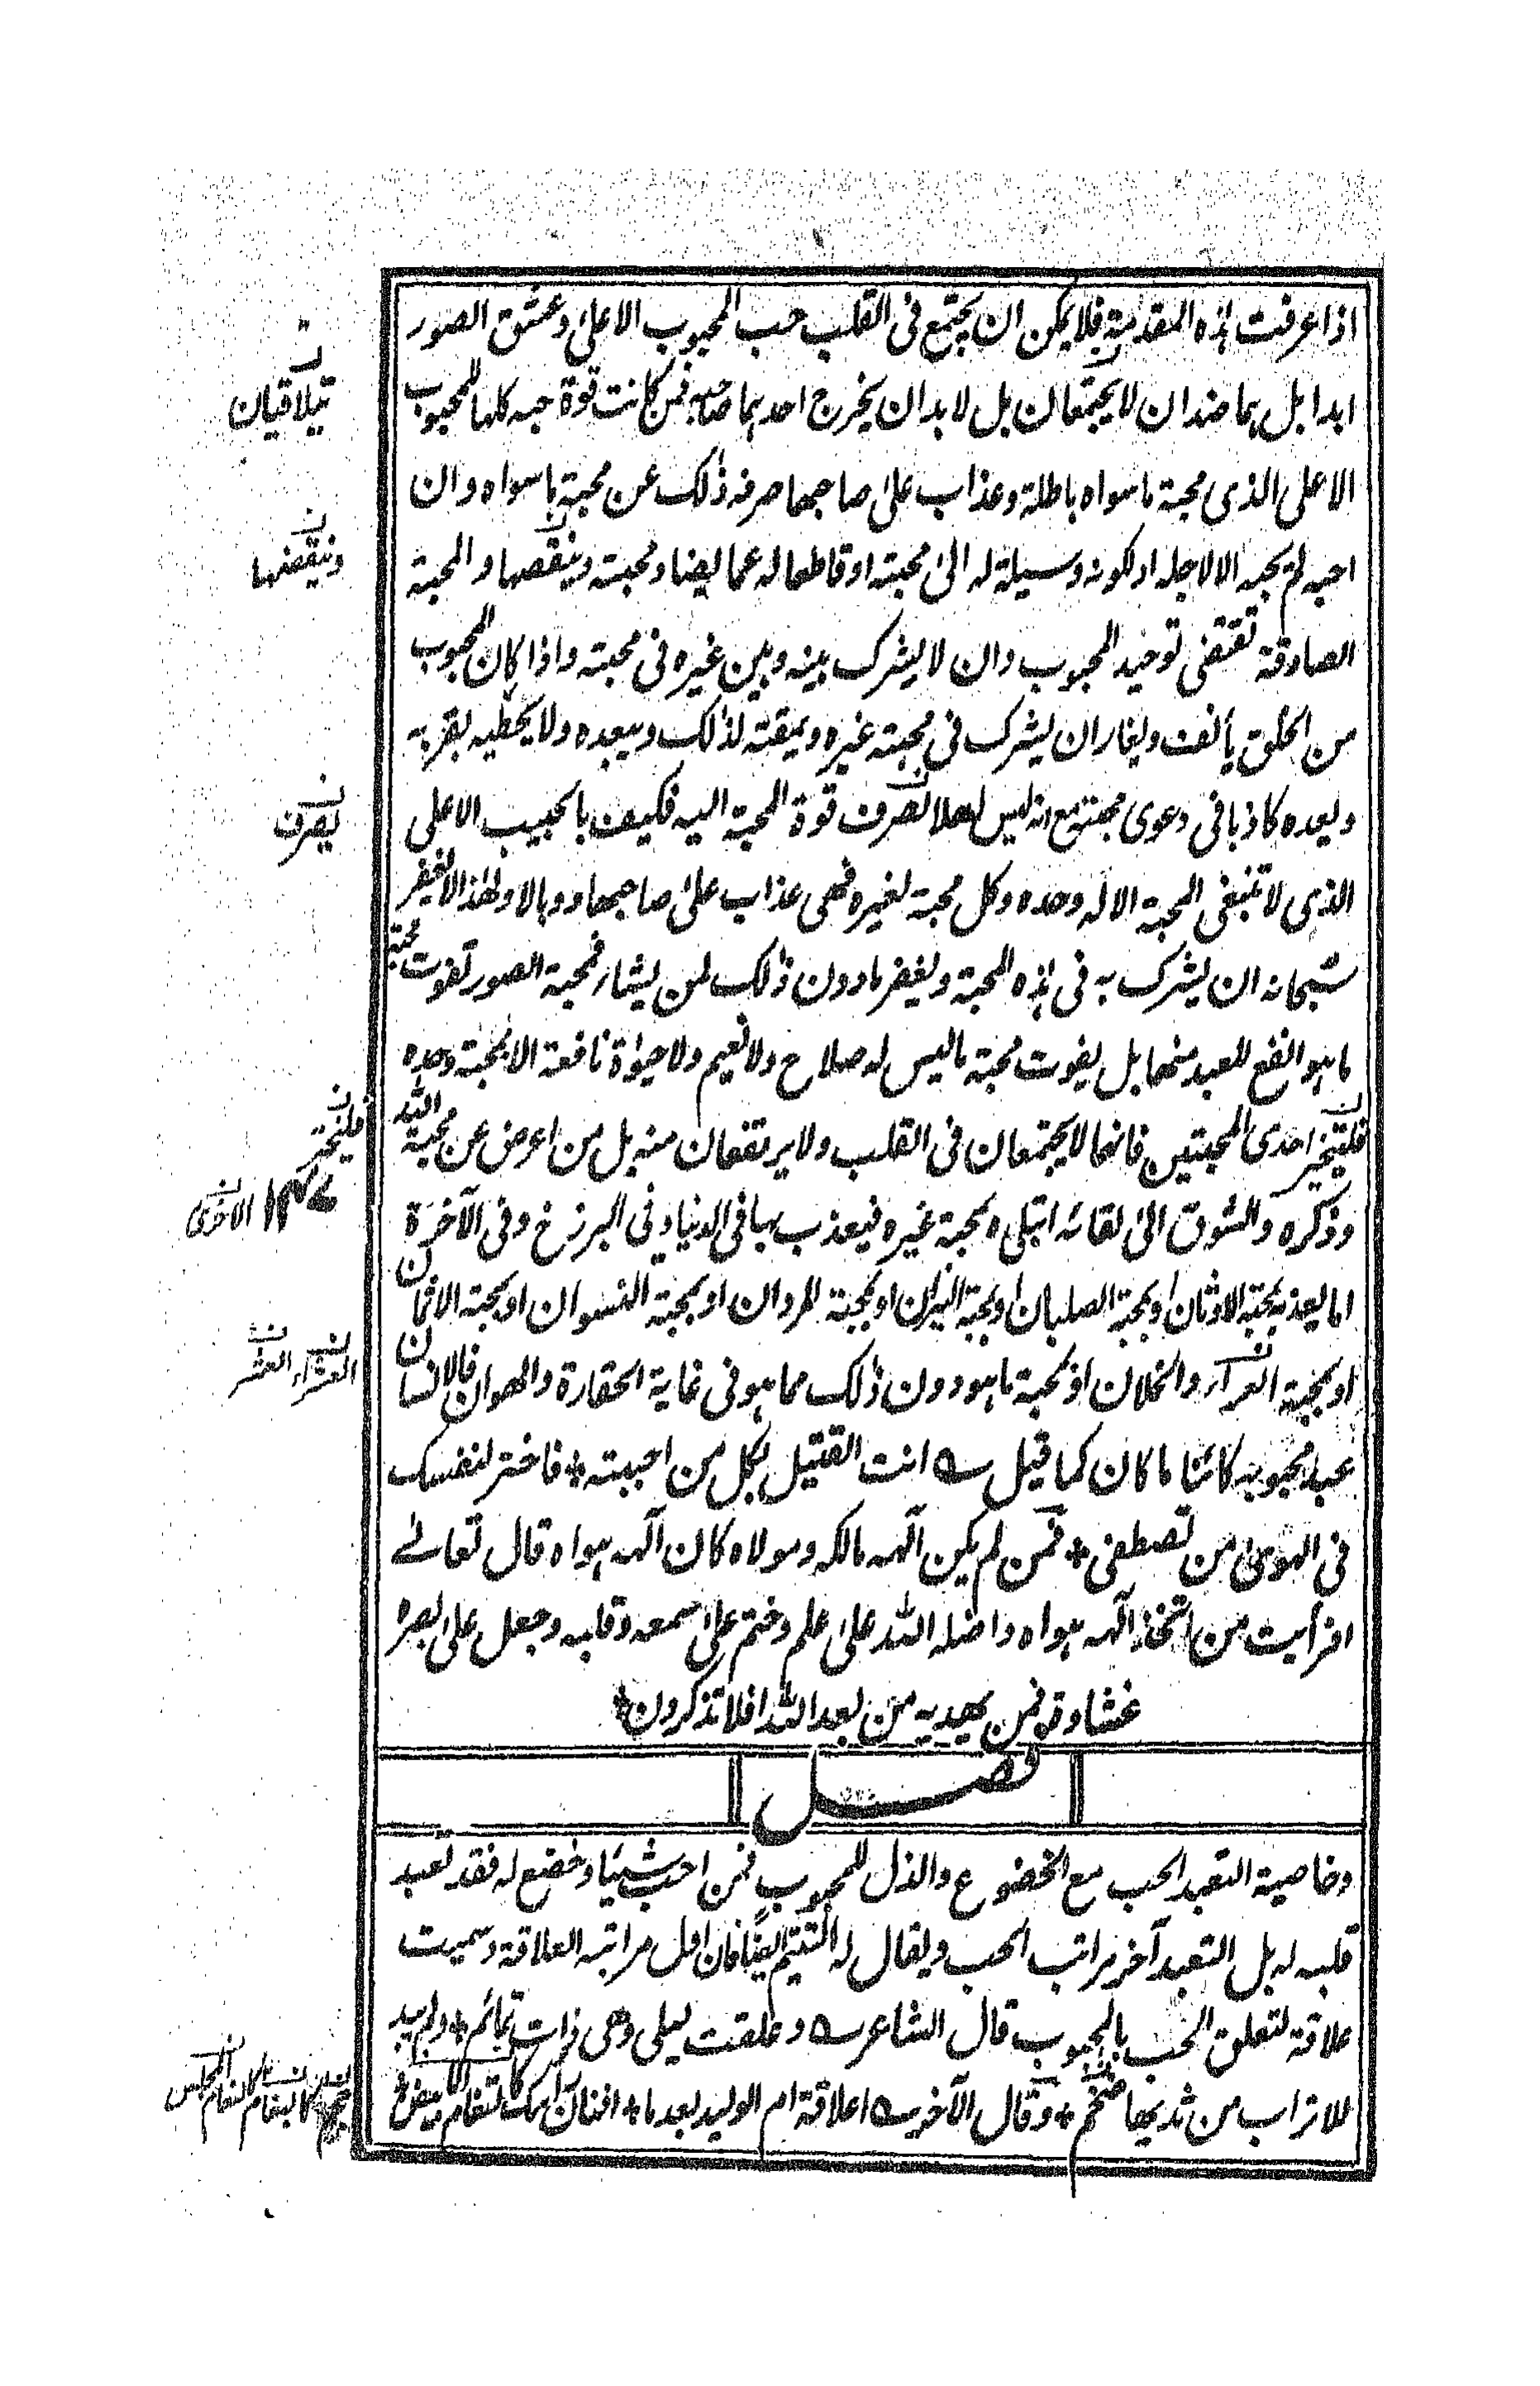 اذا عرفت هذه المقدمة فلا يمكن ان يجتمع فى القلب حب المحبوب الاعلىٰ وعشق الصور
ابدا بل هما ضدان لا يجتمعان بل لا بد ان يخرج احدهما صاحبه فمن كانت قوة حبه كلها للمحبوب
الاعلى الذى محبة ما سواه باطلة وعذاب علىٰ صاحبها صرفه ذٰلك عن محبة ما سواه وان
احبه لم يحبه الا لاجله او لكونه وسيلة له الىٰ محبته او قاطعا له عما يضاد محبته وينقصها والمحبة
الصادقة تقتضى توحيد المحبوب وان لا يشرك بينه وبين غيره فى محبته واذا كان المحبوب
من الخلق يأنف ويغار ان يشرك فى محبته غيره ويمقته لذٰلك ويبعده ولا يحظيه بقربه
ويعده كاذبا فى دعوى محبته مع انه ليس اهلا لصرف قوة المحبة اليه فكيف بالحبيب الاعلى
الذى لا تنبغى المحبة الا له وحده وكل محبة لغيره فهى عذاب علىٰ صاحبها ووبالا ولهٰذا لا يغفر
سبحانه ان يشرك به فى هذه المحبة ويغفر ما دون ذٰلك لمن يشاء فمحبة الصور تفوت محبة
ما هو انفع للعبد منها بل يفوت محبة ما ليس له صلاح ولا نعيم ولا حيٰوة نافعة الا بمحبة وحده
فليتخير احدى المحبتين فانهما لا يجتمعان فى القلب ولا يرتفعان منه بل من اعرض عن محبة الله
وذكره والشوق الىٰ لقائه ابتلى ه بمحبة غيره فيعذب بها فى الدنيا وفى البرزخ وفى الآخرة
اما يعذبه بمحبة الاوثان او بمحبة الصلبان او بمحبة النيران او بمحبة المردان او بمحبة النسوان او بمحبة الاثمان
او بمحبة العشراء والخلان او بمحبة ما هو دون ذٰلك مما هو فى غاية الحقارة والهوان فالانسان
عبد محبوبه كائنا ما كان كما قيل ؎ انت القتيل بكل من احببته + فاختر لنفسك
فى الهوىٰ من تصطفى + فمن لم يكن آلهه مالكه ومولاه كان آلهه هواه قال تعالىٰ
افرأيت من اتخذ آلهه هواه واضله الله علىٰ علم وختم علىٰ سمعه وقلبه وجعل علىٰ بصره
غشاوة فمن يهديه من بعد الله افلا تذكرون +
فصل
وخاصية التعبد الحب مع الخضوع والذل للمحبوب فمن احب شيئا وخضع له فقد تعبد
قلبه له بل التعبد آخر مراتب الحب ويقال له التتيم ايضًا فان اول مراتبه العلاقة وسميت
علاقة لتعلق الحب بالمحبوب قال الشاعر ؎ وعلقت ليلى وهى ذات تمائم + ولم يبد
للاتراب من ثديها ضخم + وقال الآخر ؎ اعلاقة ام الوليد بعد ما + افنان رأسك كالثغام الابيض +
يتلاقيان
وينقضها
يصرف
فليختر
الاخرى
العشراء العشر
كالثغام المخلس